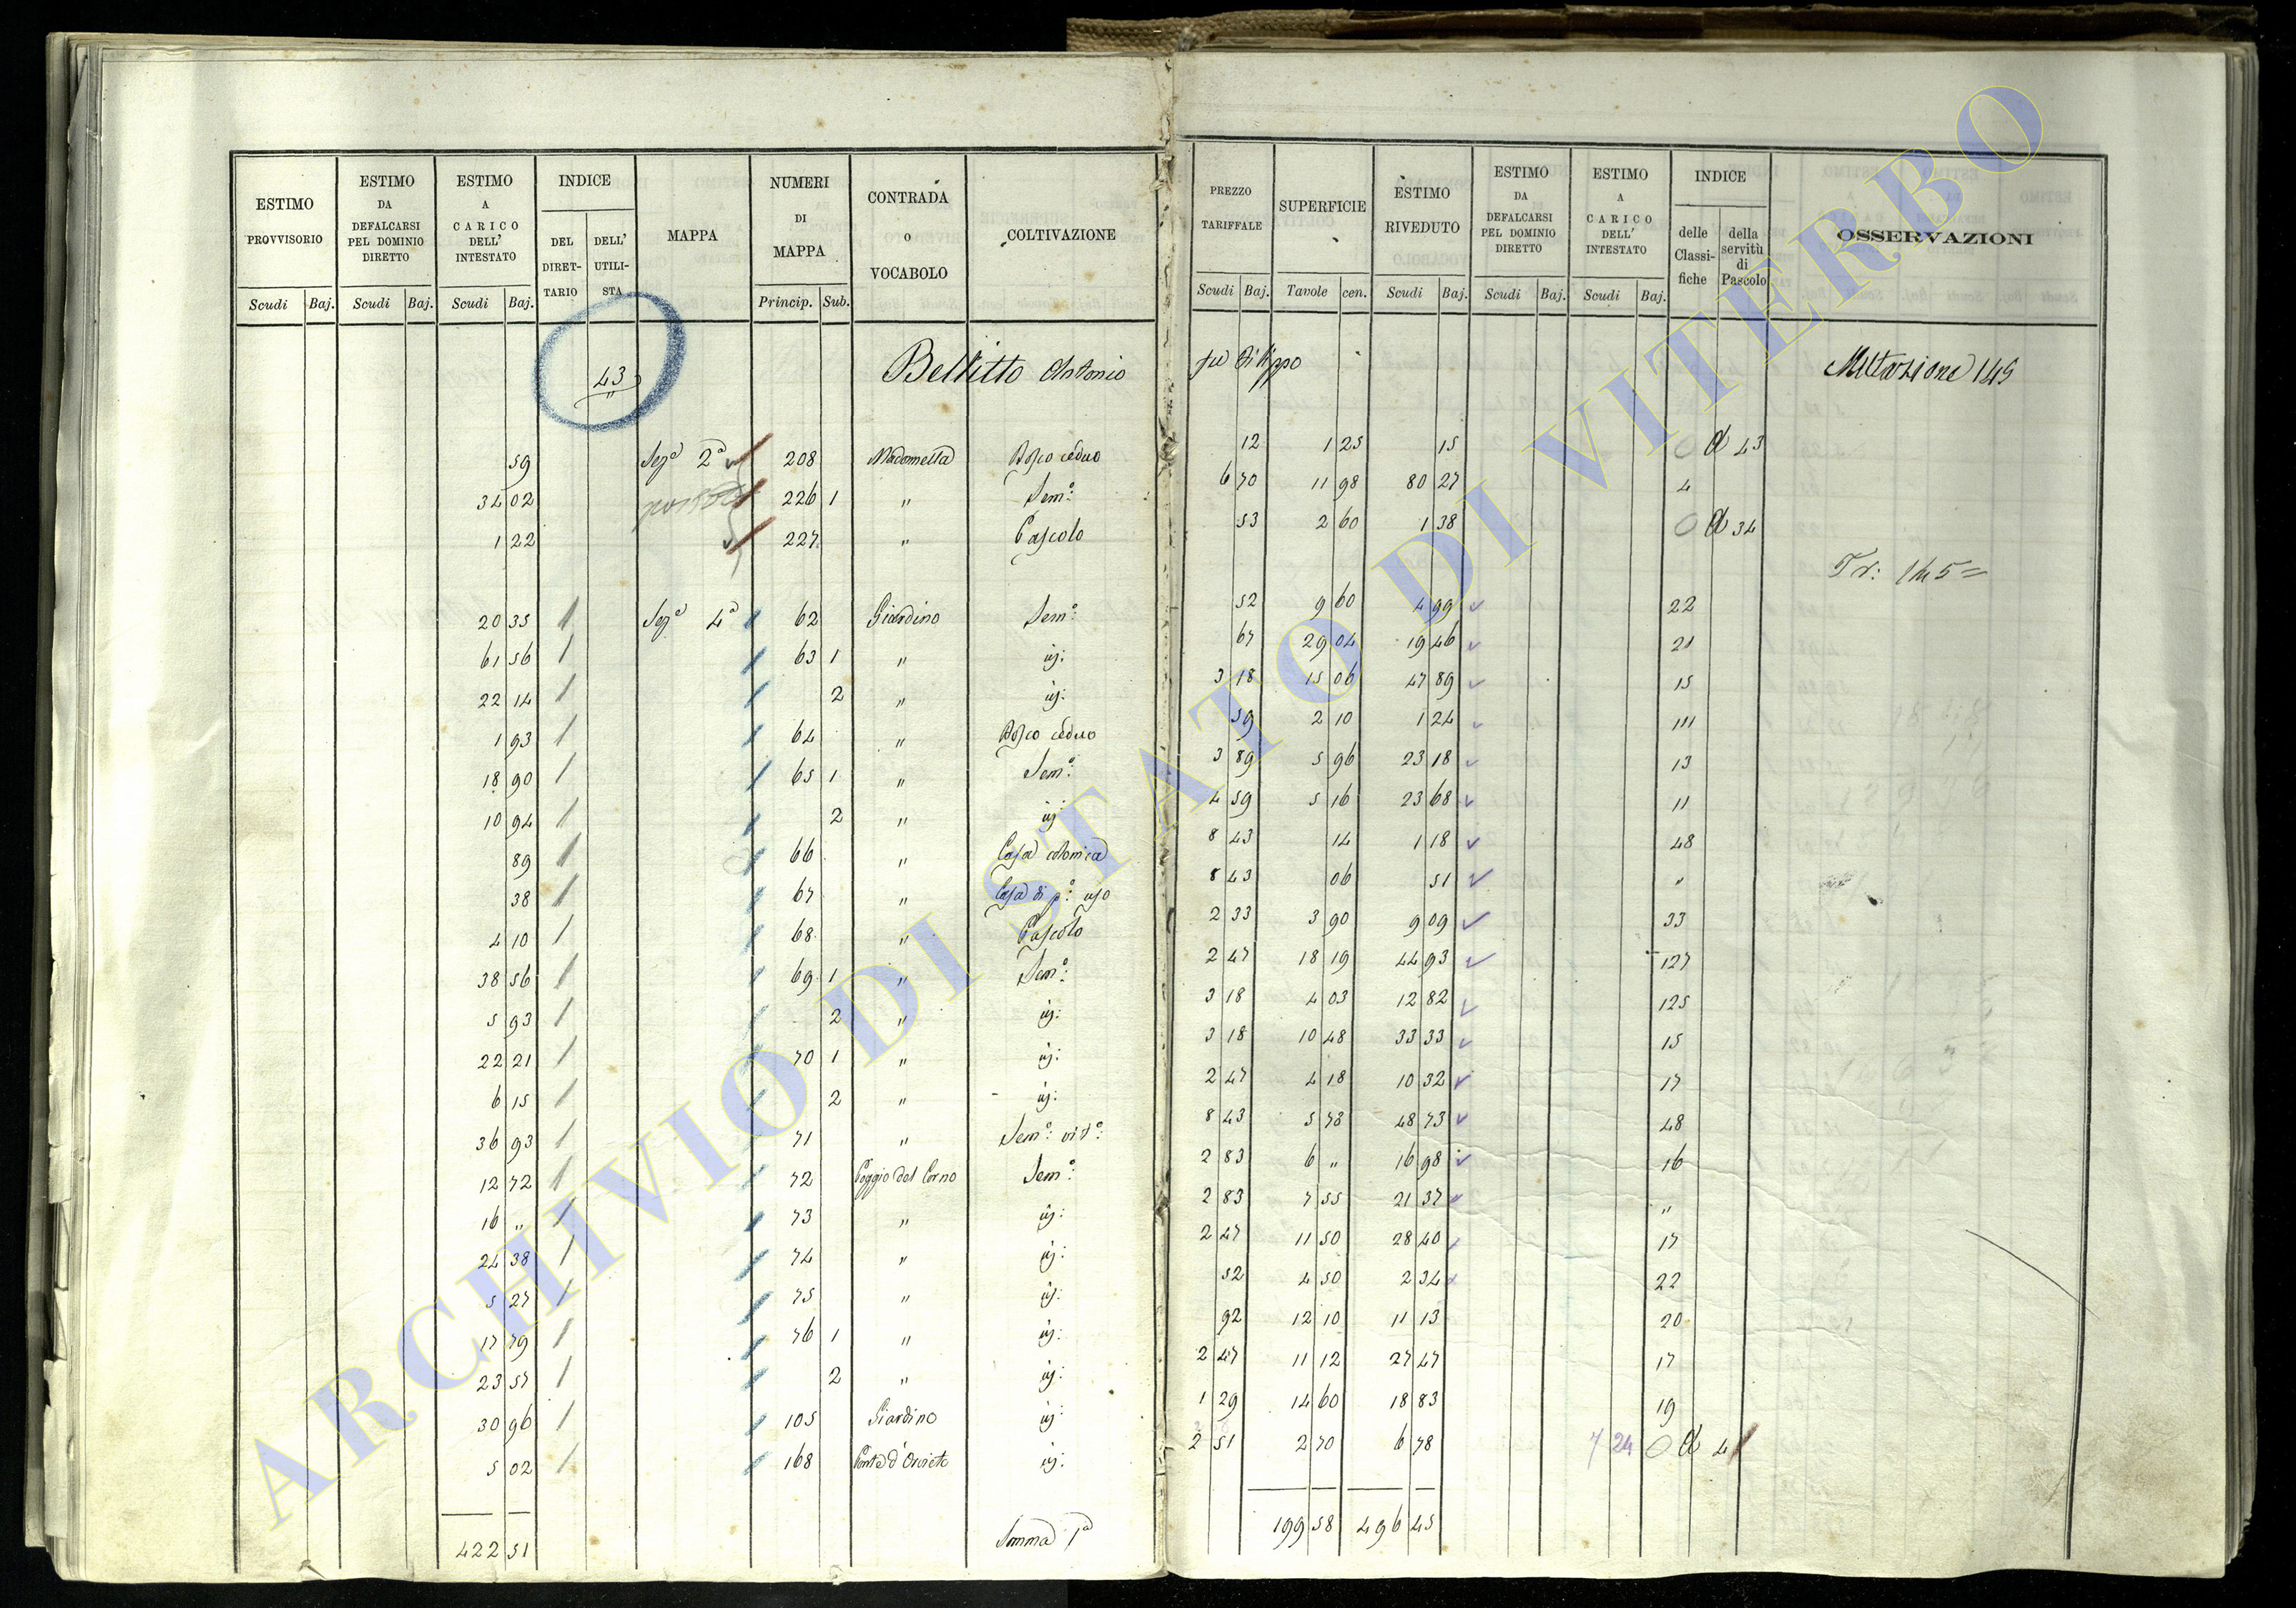 ESTIMO PROVVISORIO | ESTIMO DA DEFALCARSI PEL DOMINIO DIRETTO | ESTIMO A CARICO DELL' INTESTATO | INDICE | MAPPA | NUMERI DI MAPPA | CONTRADA O VOCABOLO | COLTIVAZIONE | PREZZO TARIFFALE | SUPERFICIE | ESTIMO RIVEDUTO | ESTIMO DA DEFALCARSI PEL DOMINIO DIRETTO | ESTIMO A CARICO DELL' INTESTATO | INDICE | OSSERVAZIONI
DEL DIRETTARIO | DELL' UTILISTA | delle Classifiche | della servitù di Pascolo
Scudi | Baj. | Scudi | Baj. | Scudi | Baj. | Princip. | Sub. | Scudi | Baj. | Tavole | cen. | Scudi | Baj. | Scudi | Baj. | Scudi | Baj.
43 Antonio fu Filippo Mutazione 145
59 Sez.a 2a 208 Madonnella Bosco ceduo 12 1 25 15 43
34 02 226 1 " Sem.o: 6 70 11 98 80 27 4
1 22 227 " Pascolo 53 2 60 1 38 34
Tr: 145=
20 35 Sez.a 4a 62 Giardino Sem.o: 52 9 60 4 99 22
61 56 63 1 " id: 67 29 04 19 46 21
22 14 2 " id: 3 18 15 06 47 89 15
1 93 64 " Bosco ceduo 59 2 10 1 24 111
18 90 65 1 " Sem.o: 3 89 5 96 23 18 13
10 94 2 " id 4 59 5 16 23 68 11
89 66 " Casa colonica 8 43 14 1 18 48
38 67 " Casa di p.o: uso 8 43 06 51 "
4 10 68 " Pascolo 2 33 3 90 9 09 33
38 56 69 1 " Sem.o: 2 47 18 19 44 93 127
5 93 2 " id: 3 18 4 03 12 82 125
22 21 70 1 " id: 3 18 10 48 33 33 15
6 15 2 " id: 2 47 4 18 10 32 17
36 93 71 " Sem.o: vit.o: 8 43 5 78 48 73 48
12 72 72 Poggio del Corno Sem.o: 2 83 6 " 16 98 16
16 " 73 " id: 2 83 7 55 21 37 "
24 38 74 " id: 2 47 11 50 28 40 17
5 27 75 " id: 52 4 50 2 34 22
17 79 76 1 " id: 92 12 10 11 13 20
23 57 2 " id: 2 47 11 12 27 47 17
30 96 105 Giardino id: 1 29 14 60 18 83 19
5 02 168 id: 2 51 2 70 6 78 7 24 4
422 51 Somma 1a 199 58 496 45
ARCHIVIO DI STATO DI VITERBO